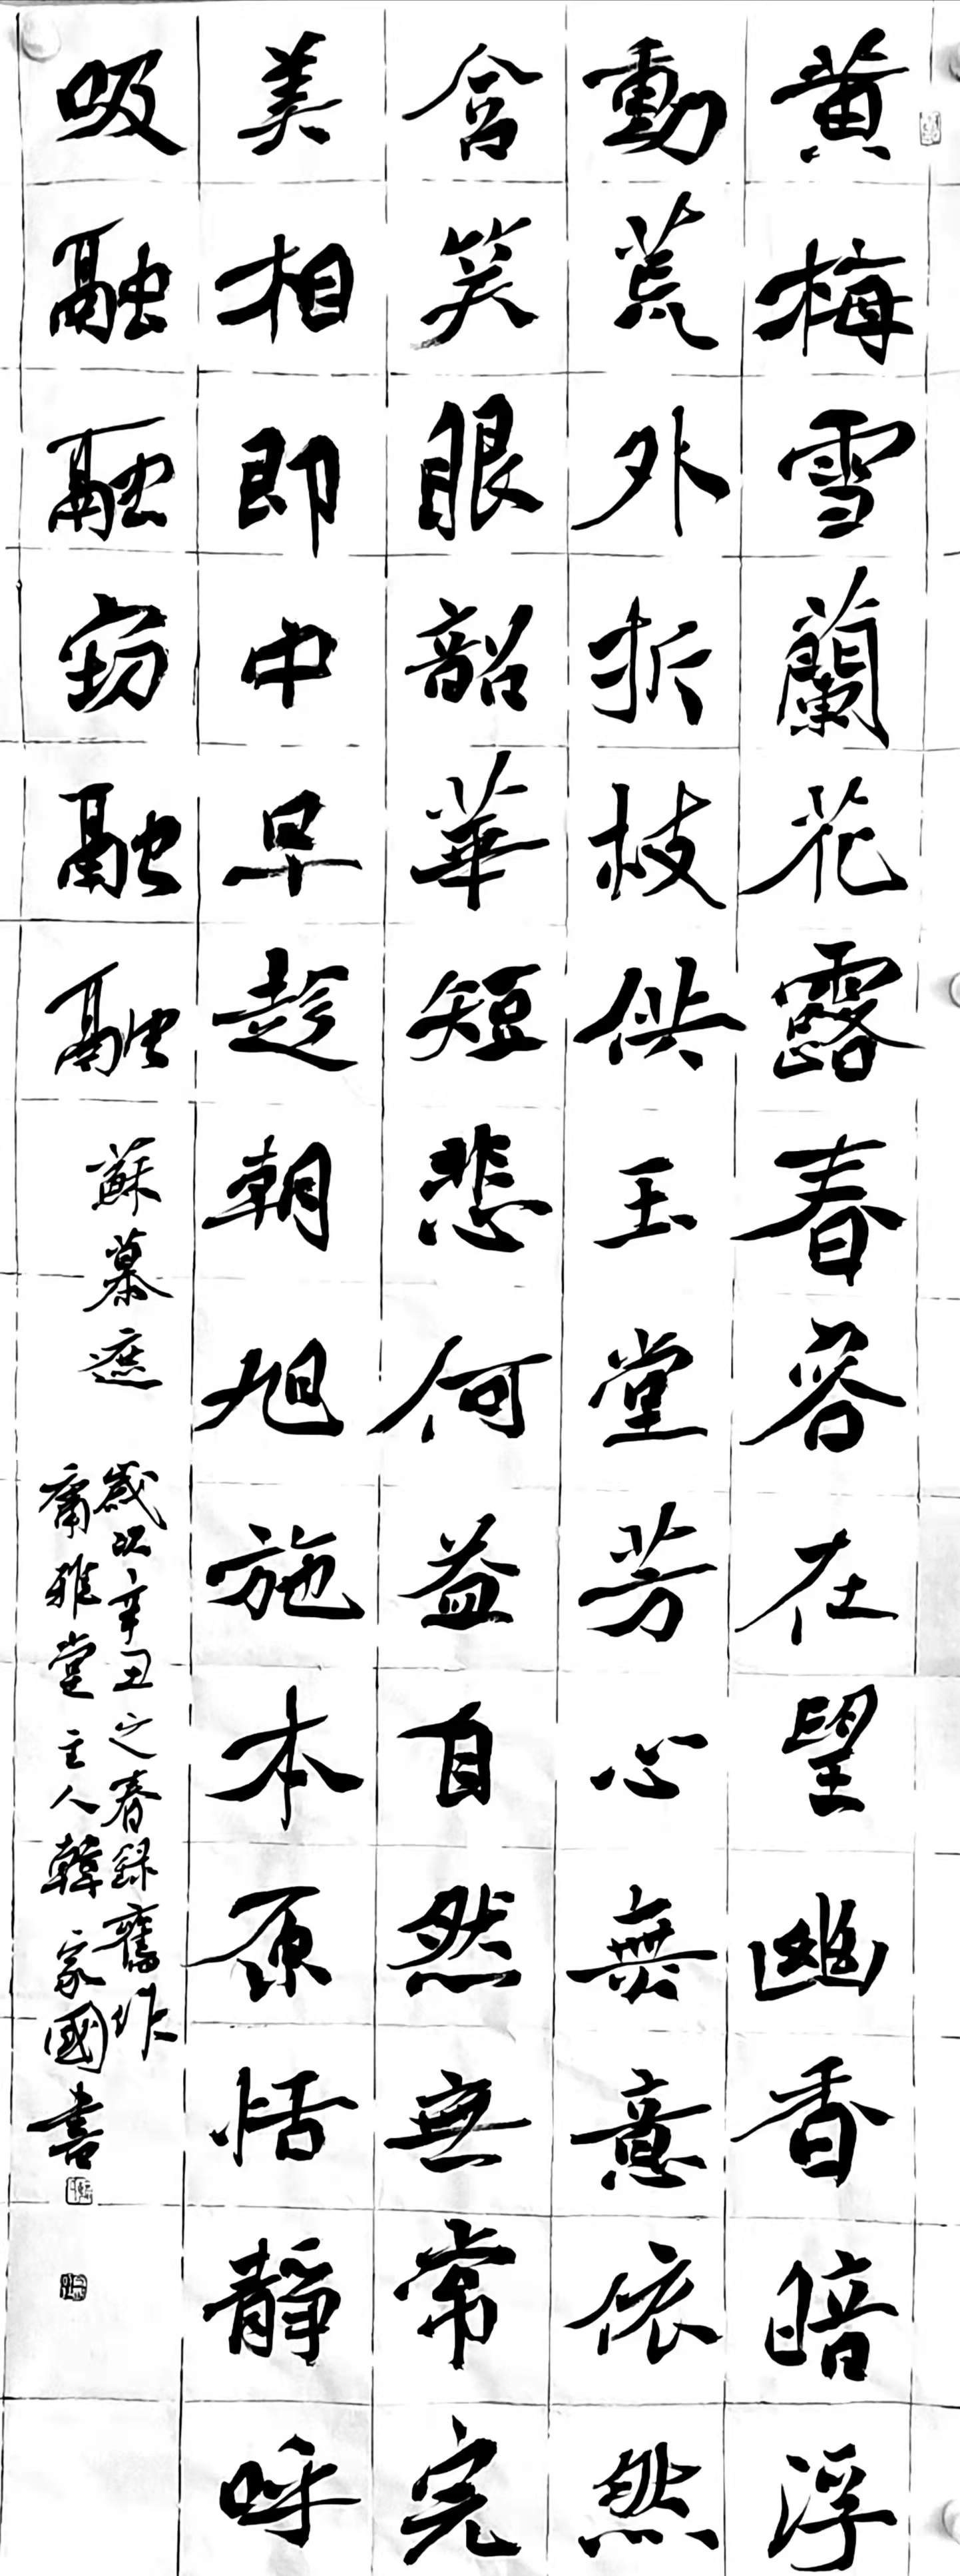 黄梅雪蘭花露春容在望幽香暗浮
動荒外折枝供玉堂芳心無意依然
含笑眼韶華短悲何益自然無常完
美相即中早趁朝旭施本原恬靜呼
吸融融窈融融
蘇幕遮
歲次辛丑之春録舊作
庸雅堂主人韓家國書